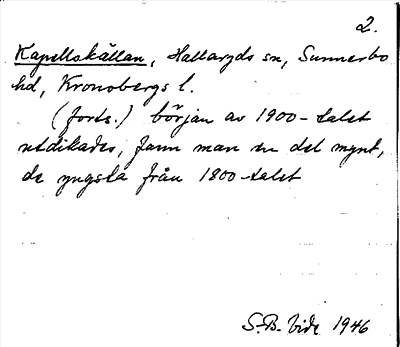 2.
Kapellskällan, Hallaryds sn, Sunnerbo
hd, Kronobergs l.
(forts.) början av 1900-talet
utdikades, fann man en del mynt,
de yngsta från 1800-talet
S.-B. Vide 1946